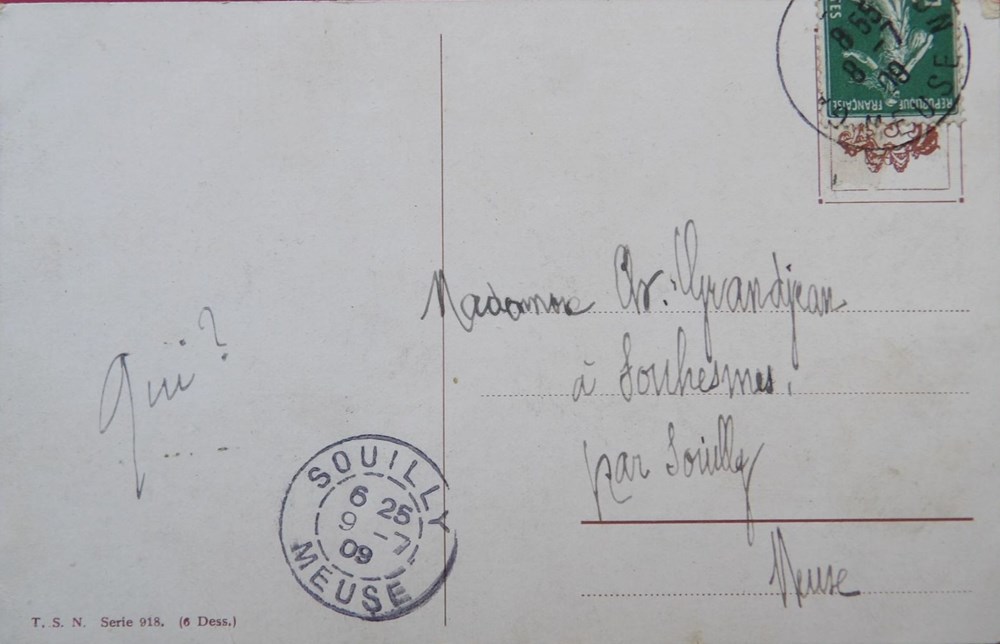 Qui ?
Madame Ch. Grandjean
à Souhesmes.
par Souilly
Meuse
SOUILLY
6 25
9 - 7
09
MEUSE
REPUBLIQUE FRANÇAISE
8 - 7
MEUSE
T. S. N. Serie 918. (6 Dess.)